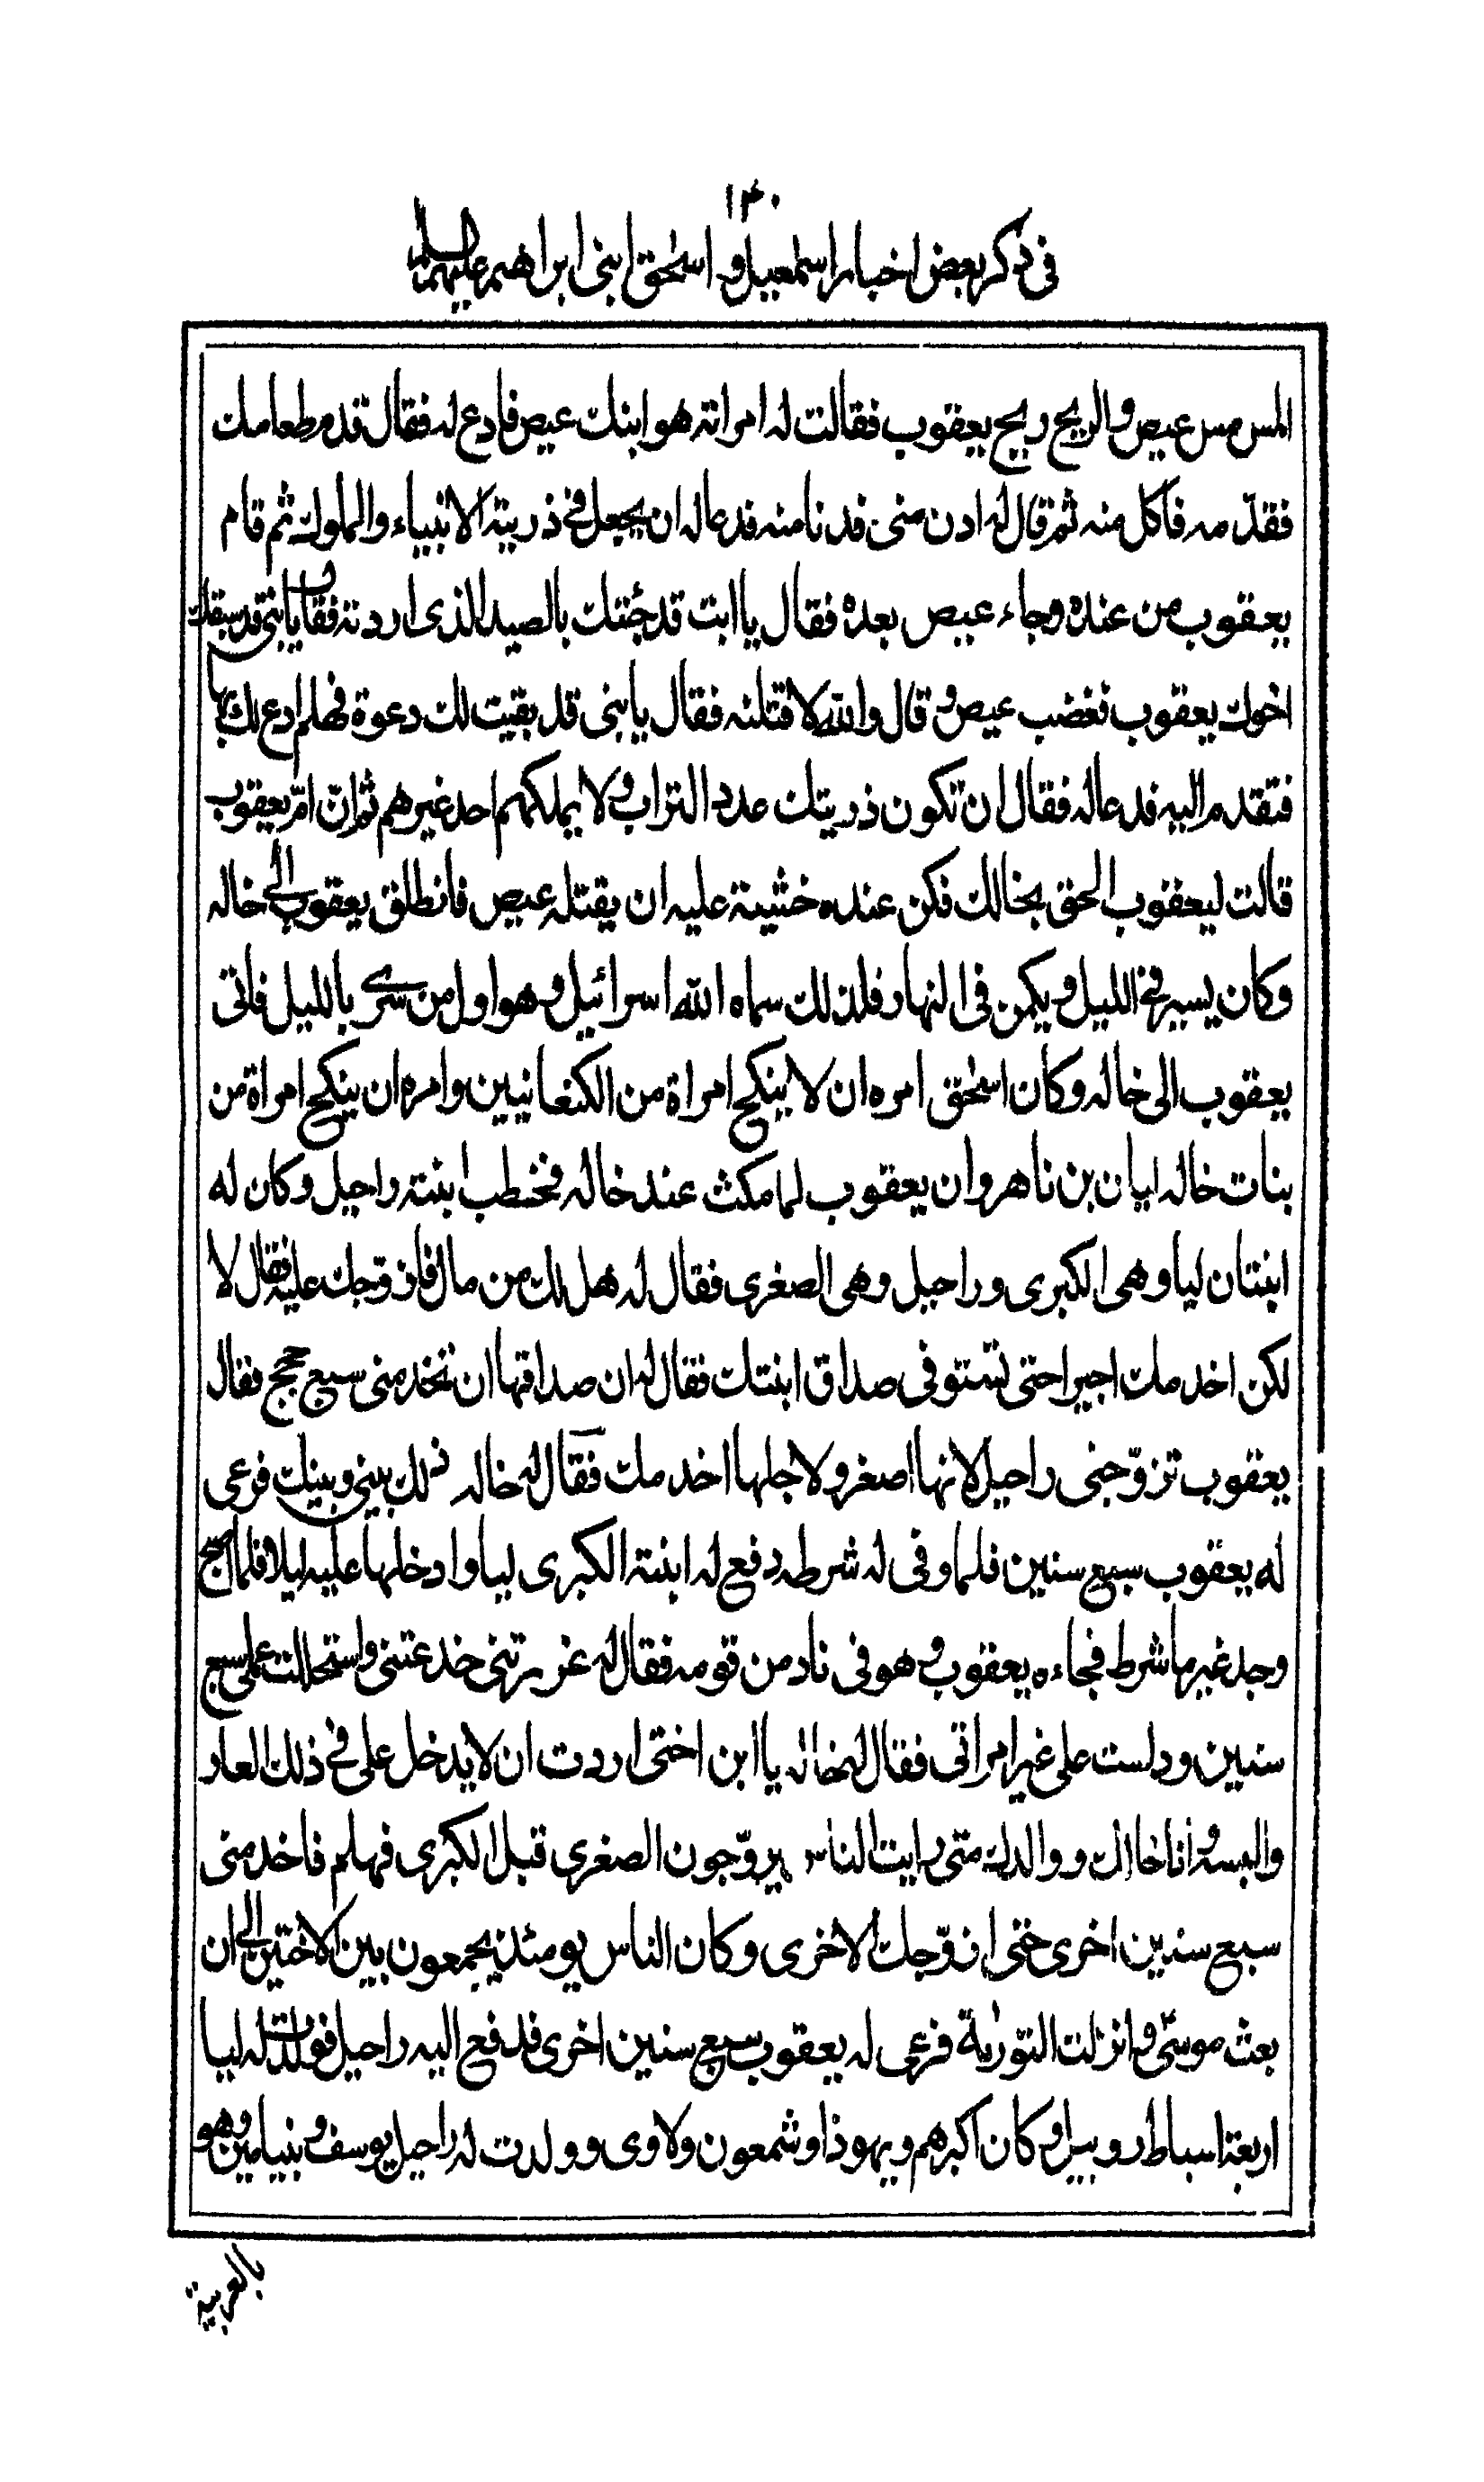 ١٣٠
في ذكر بعض اخبار اسمعيل و اسحق ابنى ابراهيم عليهما السلام
المس مس عيص والريح ريح يعقوب فقالت له امراته هو ابنك عيص فادع له فقال قدم طعامك
فقدّمه فاكل منه ثم قال له ادن منى فدنا منه فدعا له ان يجعل في ذريته الانبياء والملوك ثم قام
يعقوب من عنده وجاء عيص بعده فقال يا ابت قد جئتك بالصيد الذى اردته فقال يا بنى قد سبقك
اخوك يعقوب فغضب عيص و قال والله لاقتلنه فقال يا بنى قد بقيت لك دعوة فهلم ادع لك بها
فتقدم اليه فدعا له فقال ان تكون ذريتك عدد التراب ولا يملكهم احد غيرهم ثم انّ امّ يعقوب
قالت ليعقوب الحق بخالك فكن عنده خشية عليه ان يقتله عيص فانطلق يعقوب الى خاله
وكان يسير في الليل و يكمن فى النهار فلذلك سماه الله اسرائيل و هو اول من سرى بالليل فاتى
يعقوب الى خاله وكان اسحق امره ان لا ينكح امراة من الكنعانيين وامره ان ينكح امراة من
بنات خاله ليان بن ناهر وان يعقوب لما مكث عند خاله فخطب ابنته راحيل وكان له
ابنتان ليا وهى الكبرى و راحيل وهى الصغرى فقال له هل لك من مال فازوجك عليه فقال لا
لكن اخدمك اجيرا حتى تستوفى صداق ابنتك فقال له ان صداقها ان تخدمنى سبع حجج فقال
يعقوب تزوّجنى راحيل لانها اصغر ولاجلها اخدمك فقال له خاله ذلك بينى وبينك فرعى
له يعقوب سبع سنين فلما وفى له شرطه دفع له ابنته الكبرى ليا وادخلها عليه ليلا فلما اصبح
وجد غير ما شرط فجاءه يعقوب و هو فى ناد من قومه فقال له غررتنى خدعتنى واستحللت عملى سبع
سنين ودلست على غير امراتى فقال له خاله يا ابن اختى اردت ان لا يدخل على في ذلك العار
والبسه وانا خالك ووالدك متى رايت الناس يزوّجون الصغرى قبل الكبرى فهلم فاخدمنى
سبع سنين اخرى حتى ازوّجك الاخرى وكان الناس يومئذ يجمعون بين الاختين الى ان
بعث موسى وانزلت التورية فرعى له يعقوب سبع سنين اخرى فدفع اليه راحيل فولدت له ليا
اربعة اسباط روبيل وكان اكبرهم و يهوذا و شمعون ولاوى و ولدت له راحيل يوسف و بنيامين وهو
بالعربية